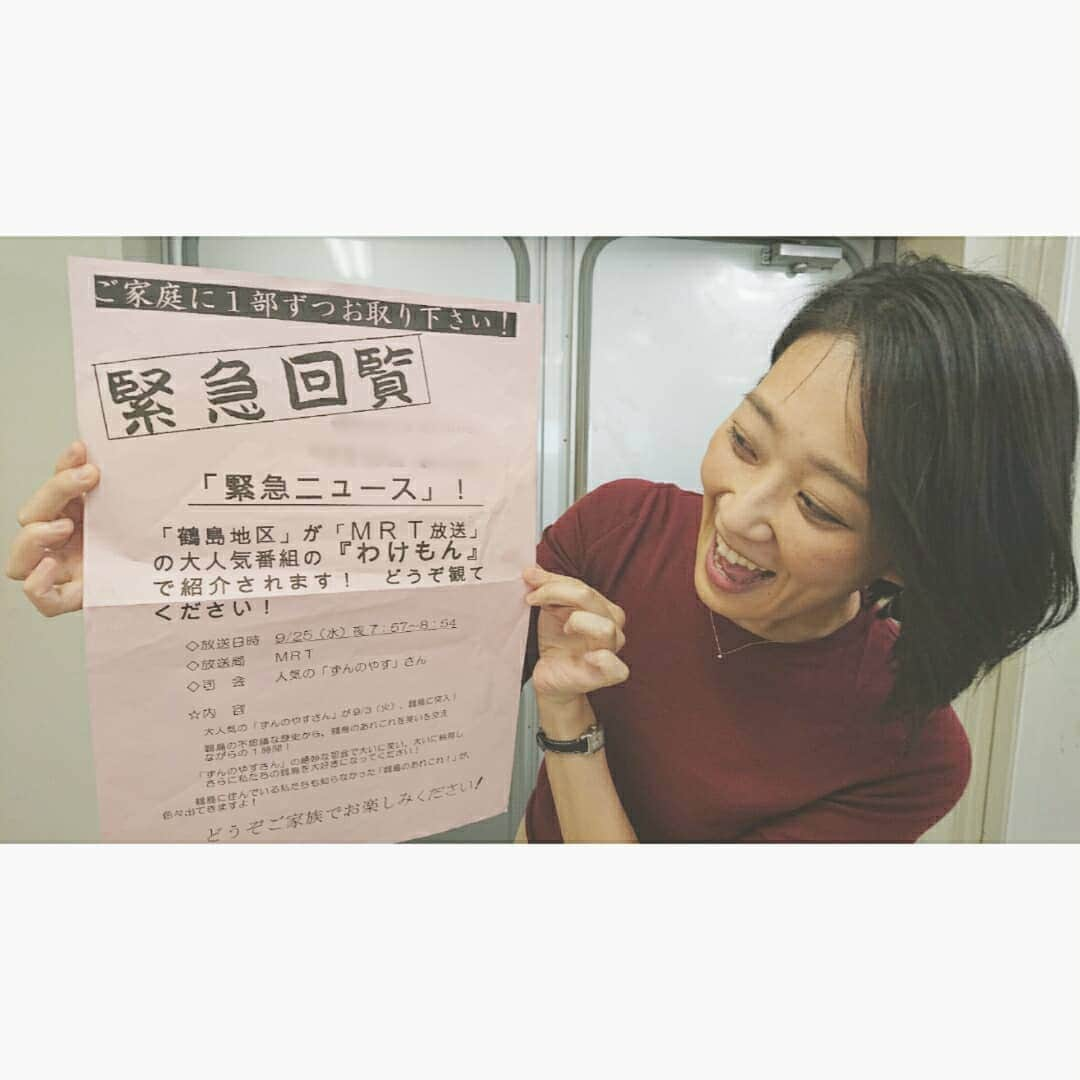 ご家庭に1部ずつお取り下さい!
緊急回覧
「緊急ニュース」!
「鶴島地区」が「MRT放送」
の大人気番組の『わけもん』
で紹介されます! どうぞ観て
ください!
◇放送日時 9/25(水)夜7:57~8:54
◇放送局 MRT
◇司 会 人気の「ずんのやす」さん
☆内 容
大人気の「ずんのやすさん」が9/3(火)、鶴島に突入!
鶴島の不思議な歴史から、鶴島のあれこれを笑いを交え
ながらの1時間!
「ずんのやすさん」の絶妙な司会で大いに笑い、大いに納得し
さらに私たちの鶴島を大好きになってください!
鶴島に住んでいる私たちも知らなかった「鶴島のあれこれ!」が、
色々出てきますよ!
どうぞご家族でお楽しみください!